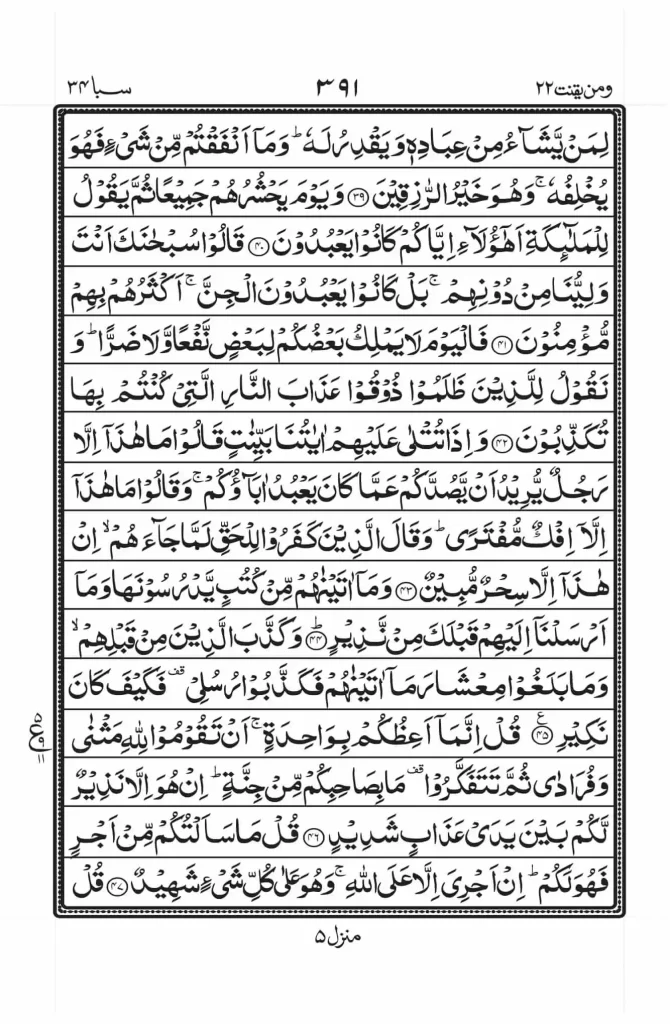 ومن یقنت ۲۲ ۳۹۱ سبا ۳۴
لِمَنْ يَّشَآءُ مِنْ عِبَادِهٖ وَ يَقْدِرُ لَهٗ ؕ وَمَاۤ اَنْفَقْتُمْ مِّنْ شَیْءٍ فَهُوَ
يُخْلِفُهٗ ۚ وَهُوَ خَيْرُ الرّٰزِقِيْنَ ﴿۳۹﴾ وَيَوْمَ يَحْشُرُهُمْ جَمِيْعًا ثُمَّ يَقُوْلُ
لِلْمَلٰٓئِكَةِ اَهٰۤؤُلَآءِ اِيَّاكُمْ كَانُوْا يَعْبُدُوْنَ ﴿۴۰﴾ قَالُوْا سُبْحٰنَكَ اَنْتَ
وَلِيُّنَا مِنْ دُوْنِهِمْ ۚ بَلْ كَانُوْا يَعْبُدُوْنَ الْجِنَّ ۚ اَكْثَرُهُمْ بِهِمْ
مُّؤْمِنُوْنَ ﴿۴۱﴾ فَالْيَوْمَ لَا يَمْلِكُ بَعْضُكُمْ لِبَعْضٍ نَّفْعًا وَّلَا ضَرًّا ؕ وَ
نَقُوْلُ لِلَّذِيْنَ ظَلَمُوْا ذُوْقُوْا عَذَابَ النَّارِ الَّتِيْ كُنْتُمْ بِهَا
تُكَذِّبُوْنَ ﴿۴۲﴾ وَ اِذَا تُتْلٰى عَلَيْهِمْ اٰيٰتُنَا بَيِّنٰتٍ قَالُوْا مَا هٰذَاۤ اِلَّا
رَجُلٌ يُّرِيْدُ اَنْ يَّصُدَّكُمْ عَمَّا كَانَ يَعْبُدُ اٰبَآؤُكُمْ ۚ وَقَالُوْا مَا هٰذَاۤ
اِلَّاۤ اِفْكٌ مُّفْتَرًى ؕ وَقَالَ الَّذِيْنَ كَفَرُوْا لِلْحَقِّ لَمَّا جَآءَهُمْ ۙ اِنْ
هٰذَاۤ اِلَّا سِحْرٌ مُّبِيْنٌ ﴿۴۳﴾ وَمَاۤ اٰتَيْنٰهُمْ مِّنْ كُتُبٍ يَّدْرُسُوْنَهَا وَمَاۤ
اَرْسَلْنَاۤ اِلَيْهِمْ قَبْلَكَ مِنْ نَّذِيْرٍ ﴿۴۴﴾ؕ وَكَذَّبَ الَّذِيْنَ مِنْ قَبْلِهِمْ ۙ
وَمَا بَلَغُوْا مِعْشَارَ مَاۤ اٰتَيْنٰهُمْ فَكَذَّبُوْا رُسُلِيْ ۫قف فَكَيْفَ كَانَ
نَكِيْرِ ﴿۴۵﴾ع قُلْ اِنَّمَاۤ اَعِظُكُمْ بِوَاحِدَةٍ ۚ اَنْ تَقُوْمُوْا لِلّٰهِ مَثْنٰى
وَفُرَادٰى ثُمَّ تَتَفَكَّرُوْا ۫قف مَا بِصَاحِبِكُمْ مِّنْ جِنَّةٍ ؕ اِنْ هُوَ اِلَّا نَذِيْرٌ
لَّكُمْ بَيْنَ يَدَیْ عَذَابٍ شَدِيْدٍ ﴿۴۶﴾ قُلْ مَا سَاَلْتُكُمْ مِّنْ اَجْرٍ
فَهُوَ لَكُمْ ؕ اِنْ اَجْرِيَ اِلَّا عَلَى اللّٰهِ ۚ وَهُوَ عَلٰى كُلِّ شَیْءٍ شَهِيْدٌ ﴿۴۷﴾ قُلْ
منزل ۵